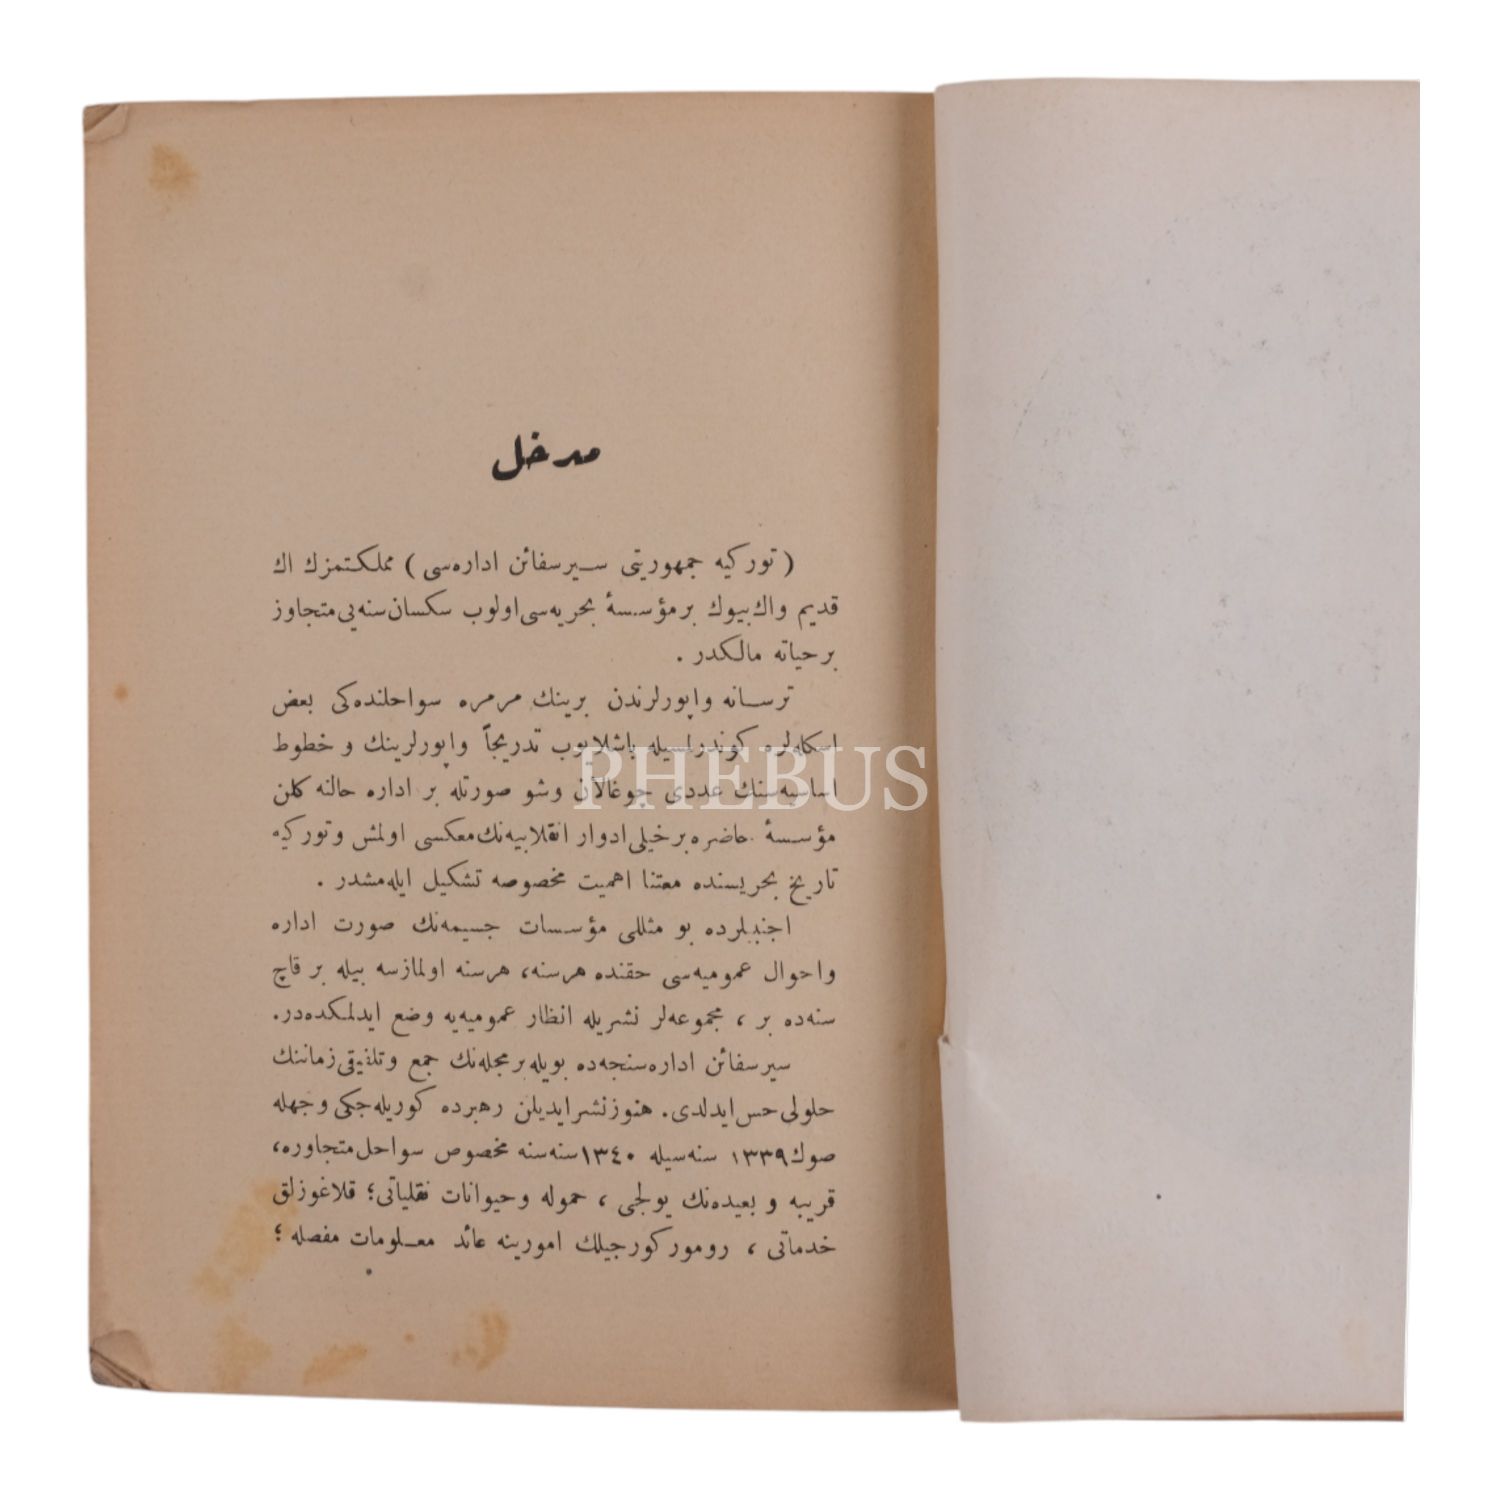 مدخل
( توركيه جمهوريتی سيرسفائن اداره‌سی ) مملكتمزك اك
قديم واك بيوك بر مؤسسهٔ بحريه‌سی اولوب سكسان سنه‌يی متجاوز
بر حياته مالكدر .
ترسانه واپورلرندن برينك مرمره سواحلنده‌كی بعض
اسكله‌لره كوندرلسيله باشلايوب تدريجاً واپورلرينك و خطوط
اساسيه‌سنك عددی چوغالان وشو صورتله بر اداره حالنه كلن
مؤسسهٔ حاضره بر خيلی ادوار انقلابيه‌نك معكسی اولمش وتوركيه
تاريخ بحريسنده معتنا اهميت مخصوصه تشكيل ايله‌مشدر .
اجنبيلرده بو مثللی مؤسسات جسيمه‌نك صورت اداره
واحوال عموميه‌سی حقنده هرسنه، هرسنه اولمازسه بيله بر قاچ
سنه‌ده بر ، مجموعه‌لر نشريله انظار عموميه‌يه وضع ايدلمكده‌در.
سيرسفائن اداره‌سنجه‌ده بويله بر مجله‌نك جمع وتلفيقی زماننك
حلولی حس ايدلدی. هنوز نشر ايديلن رهبرده كوريله‌جكی وجهله
صوك ١٣٣٩ سنه‌سيله ١٣٤٠ سنه‌سنه مخصوص سواحل متجاوره،
قريبه و بعيده‌نك يولجی ، حموله وحيوانات نقلياتی؛ قلاغوزلق
خدماتی ، روموركورجيلك امورينه عائد معلومات مفصله ؛
PHEBUS